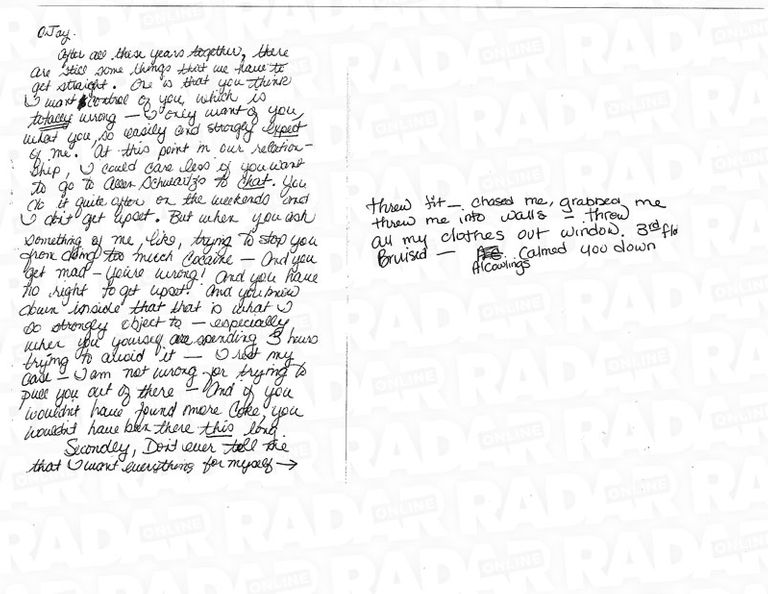 OJay.
After all these years together, there
are still some things that we have to
get straight. One is that you think
I want control of you, which is
totally wrong — I only want of you,
what you, so easily and strongly expect
of me. At this point in our relation-
ship, I could care less if you want
to go to Allen Schwartz's to chat. You
do it quite often on the weekends and
I don't get upset. But when you ask
something of me, like, trying to stop you
from doing too much Cocaine — And you
get mad — you're wrong! And you have
no right to get upset. And you know
down inside that that is what I
so strongly object to — especially
when you yourself are spending 3 hours
trying to avoid it — I rest my
case — I am not wrong for trying to
pull you out of there — And if you
wouldn't have found more Coke, you
wouldn't have been there this long.
Secondly, Don't ever tell me
that I want everything for myself →
threw fit — chased me, grabbed me
threw me into walls — threw
all my clothes out window. 3rd flo
Bruised — Calmed you down
Alcowlings
RADAR ONLINE